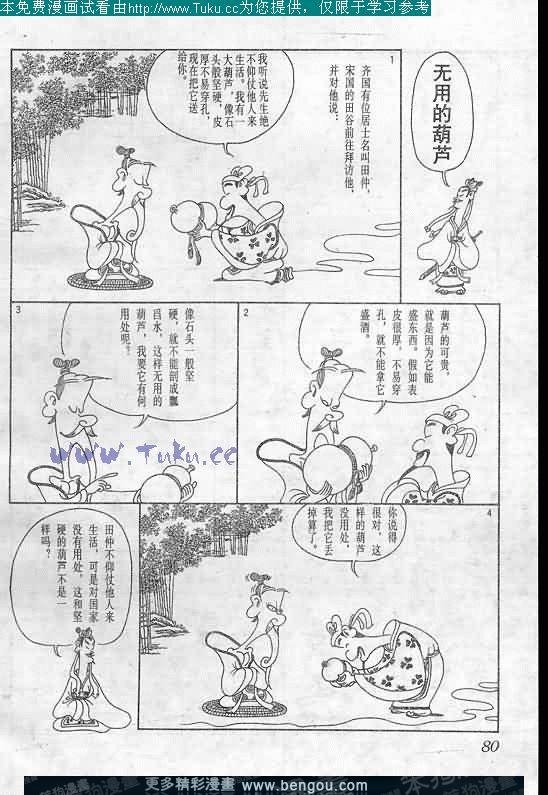 本免费漫画试看由http://www.Tuku.cc为您提供，仅限于学习参考
无用的葫芦
1
齐国有位居士名叫田仲，
宋国的田谷前往拜访他，
并对他说：
我听说先生绝
不仰仗他人来
生活。我有一
大葫芦，像石
头般坚硬，皮
厚不易穿孔，
现在把它送
给你。
2
葫芦的可贵，
就是因为它能
盛东西。假如表
皮很厚，不易穿
孔，就不能拿它
盛酒。
3
像石头一般坚
硬，就不能剖成瓢
舀水，这样无用的
葫芦，我要它有何
用处呢。
www.Tuku.cc
4
你说得
很对，这
样的葫芦
没用处，
我把它丢
掉算了。
田仲不仰仗他人来
生活，可是对国家
没有用处，这和坚
硬的葫芦不是一
样吗？
80
更多精彩漫畫 www.bengou.com